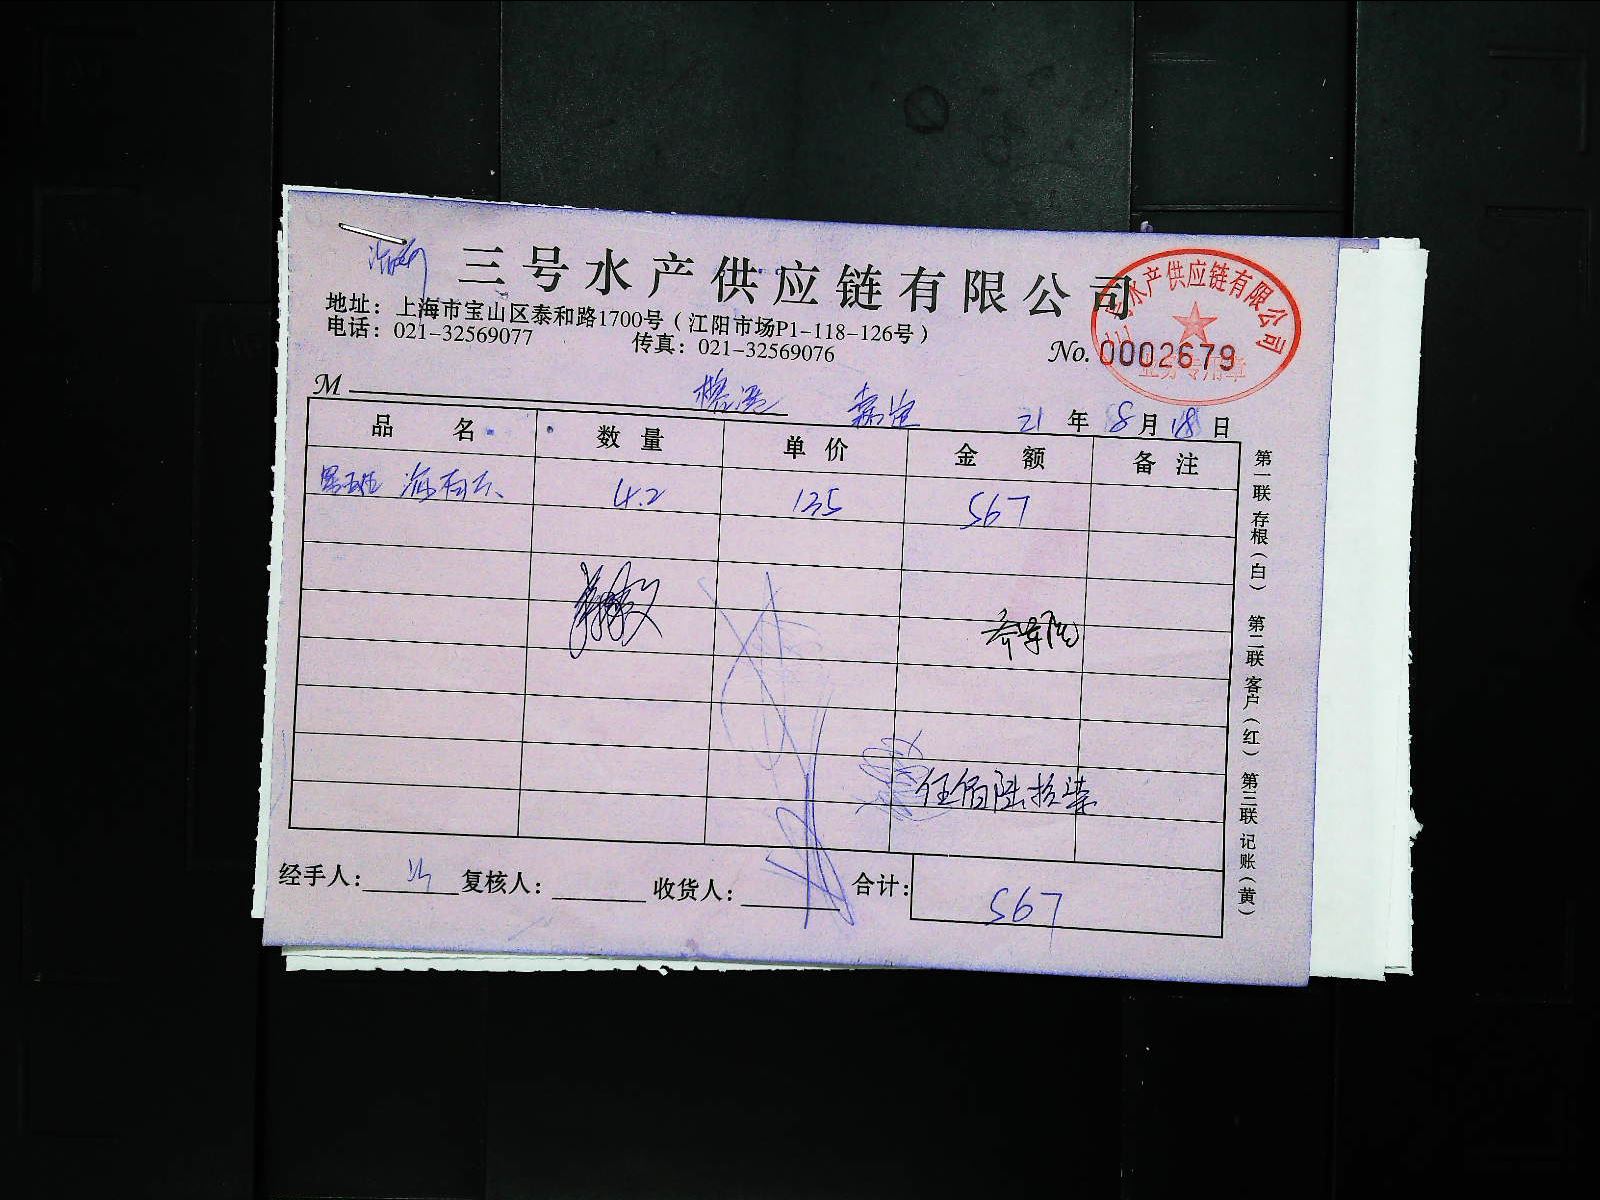 三号水产供应链有限公司
地址：上海市宝山区泰和路1700号（江阳市场P1-118-126号）
电话：021-32569077 传真：021-32569076
No. 0002679
三号水产供应链有限公司
业务专用章
M
21年8月18日
品名 数量 单价 金额 备注
4.2 135 567
伍佰陆拾柒
经手人： 复核人： 收货人： 合计：567
第一联 存根（白） 第二联 客户（红） 第三联 记账（黄）